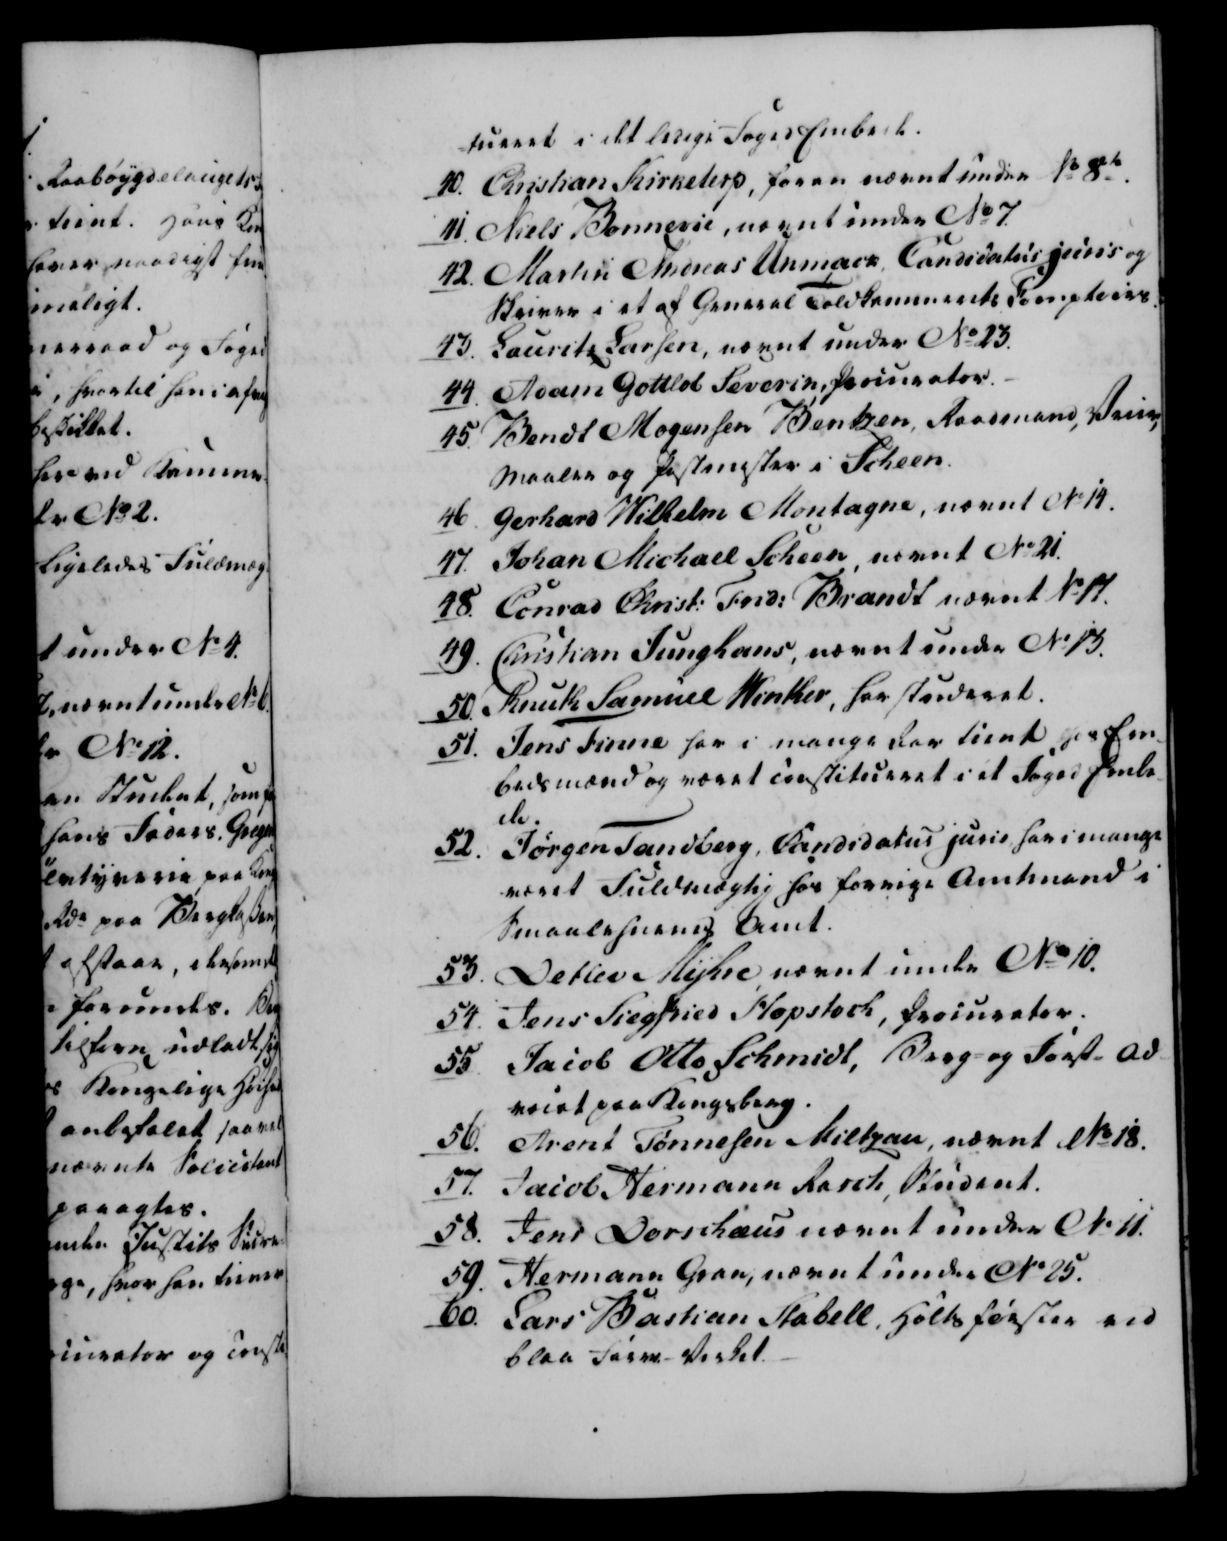 Raabøygdelaugets
tient. Hans
inaligt.
og Foged
, hvortil han
beskikket.
ved Kammer
No 2.
Ligeledes Fuldmæg
t under No 4.
, nævnt under No 6.
No 12.
en Student, som
hans Faders,
paa
paa
, udladt sig
Kongelige
anbefalet, saavel
nævnte Solicitant
paaagtes.
Justits
, hvor han tiener
og const
tueret i det ledige Foged Embede.
40. Christian Kirketerp, foran nævnt under No 8.
41. Niels Bonnevie, nævnt under No 7.
42. Martin Andreas Unmack, Candidatus juris og
Skriver i et af General Toldkammerets Comptoirs.
43. Lauritz Larsen, nævnt under No 23.
44. Adam Gottlob Severin, Procurator. -
45. Bendt Mogensen Bentzen, Raadmand, Veier,
Maaler og Postmester i Scheen.
46. Gerhard Wilhelm Montagne, nævnt No 14.
47. Johan Michael Scheen, nævnt No 21.
48. Conrad Christ: Frid: Brandt nævnt No 17.
49. Christian Junghans, nævnt under No 13.
50. Knuth Samuel Winther, har studeret.
51. Jens Finne har i mange Aar tient hos Em-
bedsmænd og været constitueret i et Foged Embe-
de.
52. Jørgen Tandberg, Kandidatus juris har i mange
været Fuldmægtig hos forrige Amtmand i
Smaalehnenes Amt.
53. Detlev Myhre, nævnt under No 10.
54. Jens Siegfried Klopstoch, Procurator.
55. Jacob Otto Schmidt, Berg- og Forst- Ad-
vocat paa Kongsberg.
56. Arent Tønnesen Miltzau, nævnt No 18.
57. Jacob Hermann Rasch, Student.
58. Jens Dorschæus nævnt under No 11.
59. Hermann Graa, nævnt under No 25.
60. Lars Bastian Stabell, Holtzførster ved
blaa Farve-Verket. -